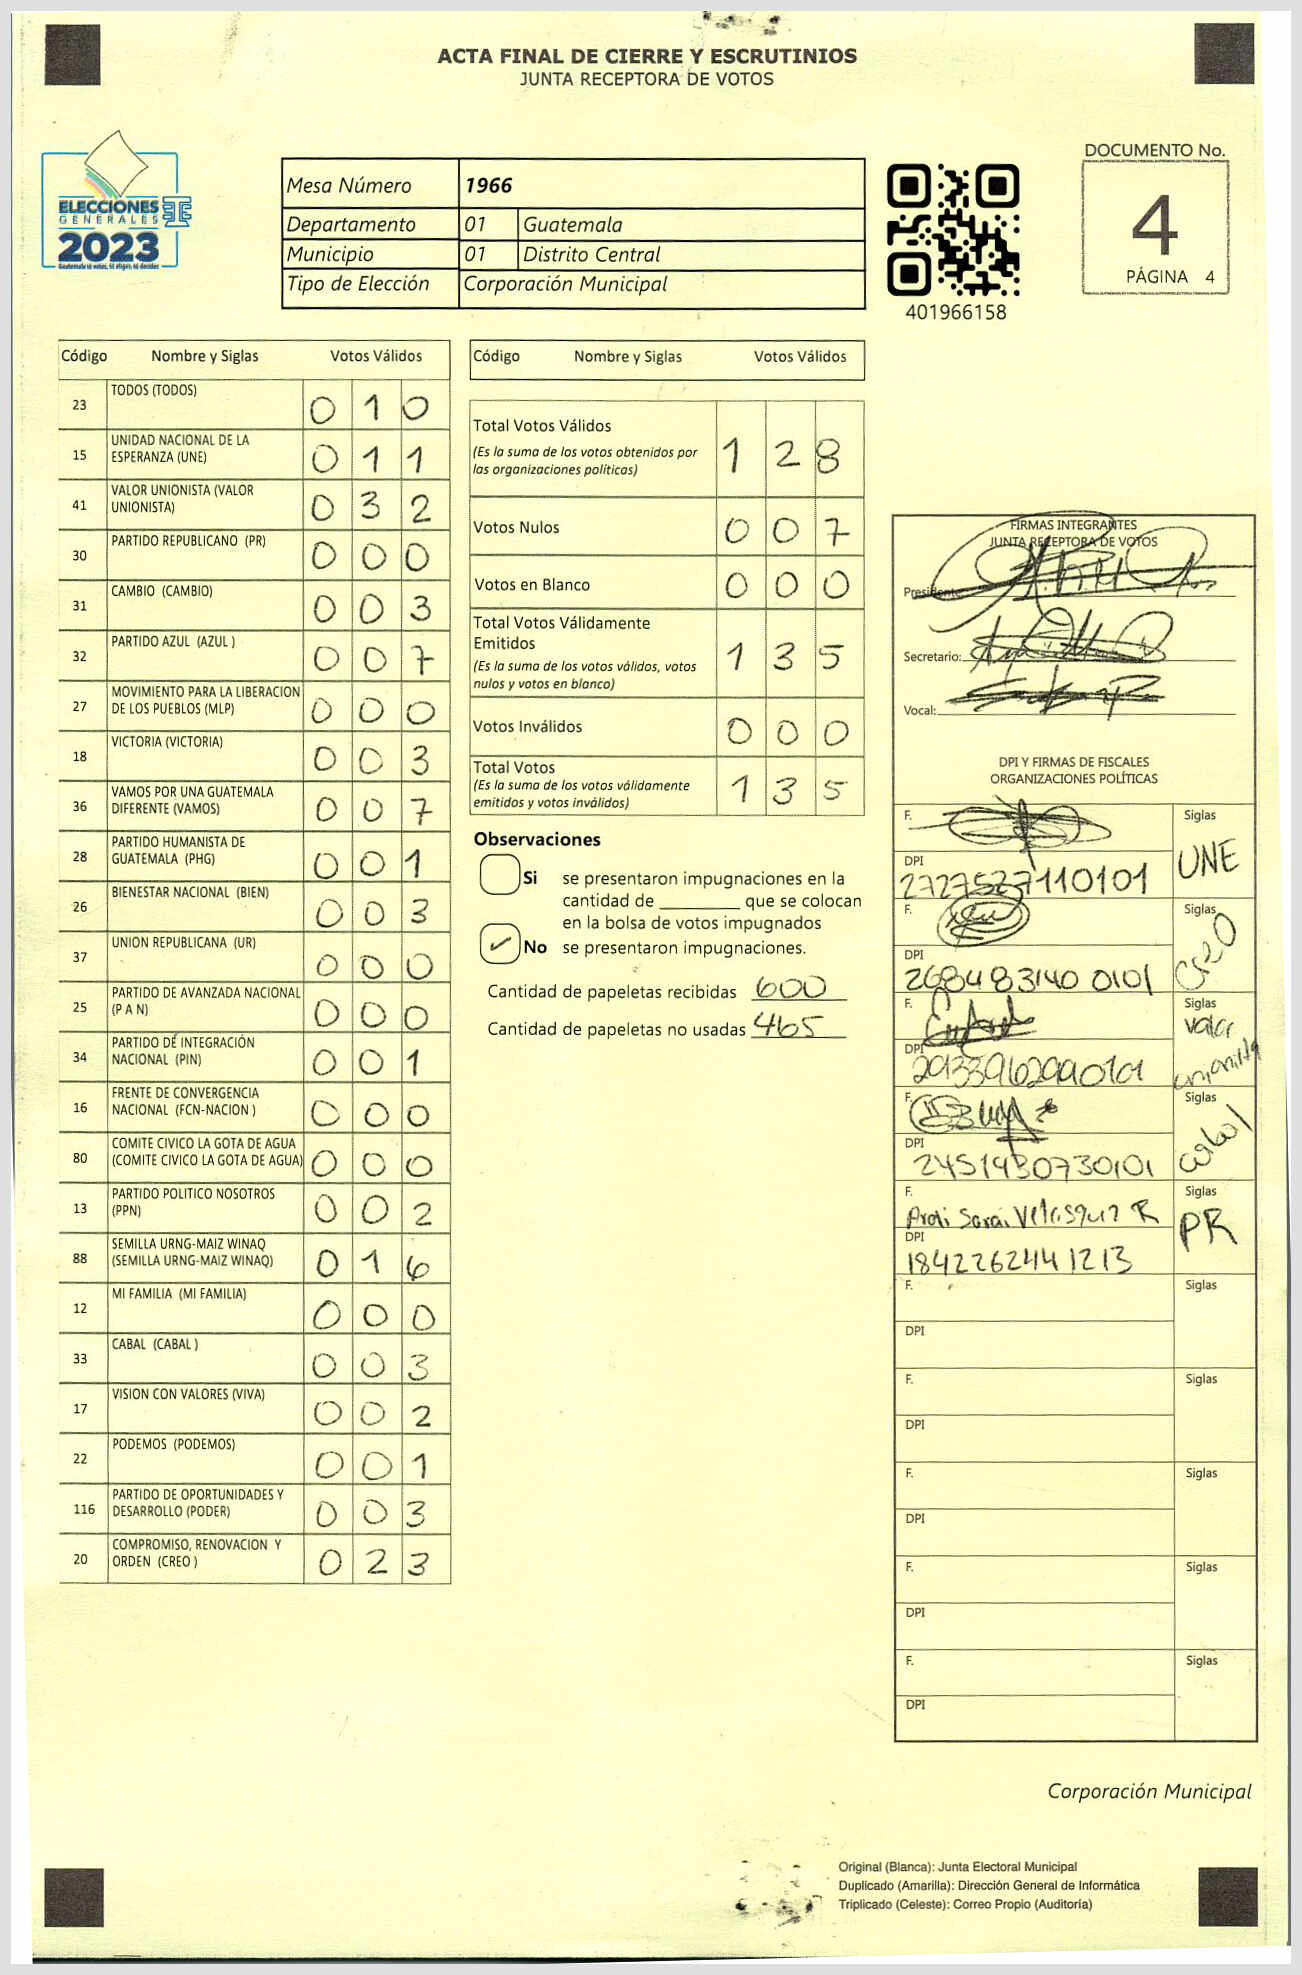 ACTA FINAL DE CIERRE Y ESCRUTINIOS
JUNTA RECEPTORA DE VOTOS
ELECCIONES
GENERALES
2023
Mesa Número 1966
Departamento 01 Guatemala
Municipio 01 Distrito Central
Tipo de Elección Corporación Municipal
401966158
DOCUMENTO No.
4
PÁGINA 4
Código Nombre y Siglas Votos Válidos
23 TODOS (TODOS) 0 1 0
15 UNIDAD NACIONAL DE LA
ESPERANZA (UNE) 0 1 1
41 VALOR UNIONISTA (VALOR
UNIONISTA) 0 3 2
30 PARTIDO REPUBLICANO (PR) 0 0 0
31 CAMBIO (CAMBIO) 0 0 3
32 PARTIDO AZUL (AZUL ) 0 0 7
27 MOVIMIENTO PARA LA LIBERACION
DE LOS PUEBLOS (MLP) 0 0 0
18 VICTORIA (VICTORIA) 0 0 3
36 VAMOS POR UNA GUATEMALA
DIFERENTE (VAMOS) 0 0 7
28 PARTIDO HUMANISTA DE
GUATEMALA (PHG) 0 0 1
26 BIENESTAR NACIONAL (BIEN) 0 0 3
37 UNION REPUBLICANA (UR) 0 0 0
25 PARTIDO DE AVANZADA NACIONAL
(P A N) 0 0 0
34 PARTIDO DE INTEGRACIÓN
NACIONAL (PIN) 0 0 1
16 FRENTE DE CONVERGENCIA
NACIONAL (FCN-NACION ) 0 0 0
80 COMITE CIVICO LA GOTA DE AGUA
(COMITE CIVICO LA GOTA DE AGUA) 0 0 0
13 PARTIDO POLITICO NOSOTROS
(PPN) 0 0 2
88 SEMILLA URNG-MAIZ WINAQ
(SEMILLA URNG-MAIZ WINAQ) 0 1 6
12 MI FAMILIA (MI FAMILIA) 0 0 0
33 CABAL (CABAL ) 0 0 3
17 VISION CON VALORES (VIVA) 0 0 2
22 PODEMOS (PODEMOS) 0 0 1
116 PARTIDO DE OPORTUNIDADES Y
DESARROLLO (PODER) 0 0 3
20 COMPROMISO, RENOVACION Y
ORDEN (CREO ) 0 2 3
Código Nombre y Siglas Votos Válidos
Total Votos Válidos
(Es la suma de los votos obtenidos por
las organizaciones políticas) 1 2 8
Votos Nulos 0 0 7
Votos en Blanco 0 0 0
Total Votos Válidamente
Emitidos
(Es la suma de los votos válidos, votos
nulos y votos en blanco) 1 3 5
Votos Inválidos 0 0 0
Total Votos
(Es la suma de los votos válidamente
emitidos y votos inválidos) 1 3 5
Observaciones
Si se presentaron impugnaciones en la
cantidad de ________ que se colocan
en la bolsa de votos impugnados
No se presentaron impugnaciones.
Cantidad de papeletas recibidas 600
Cantidad de papeletas no usadas 465
FIRMAS INTEGRANTES
JUNTA RECEPTORA DE VOTOS
Presidente:
Secretario:
Vocal:
DPI Y FIRMAS DE FISCALES
ORGANIZACIONES POLÍTICAS
F. Siglas
UNE
DPI
2727527110101
F. Siglas
CREO
DPI
2684831400101
F. Siglas
Valor
unionista
DPI
2933962990101
F. Siglas
cabal
DPI
2451430730101
F. Siglas
PR
DPI
1842262441213
F. Siglas
DPI
F. Siglas
DPI
F. Siglas
DPI
F. Siglas
DPI
F. Siglas
DPI
Corporación Municipal
Original (Blanca): Junta Electoral Municipal
Duplicado (Amarilla): Dirección General de Informática
Triplicado (Celeste): Correo Propio (Auditoría)